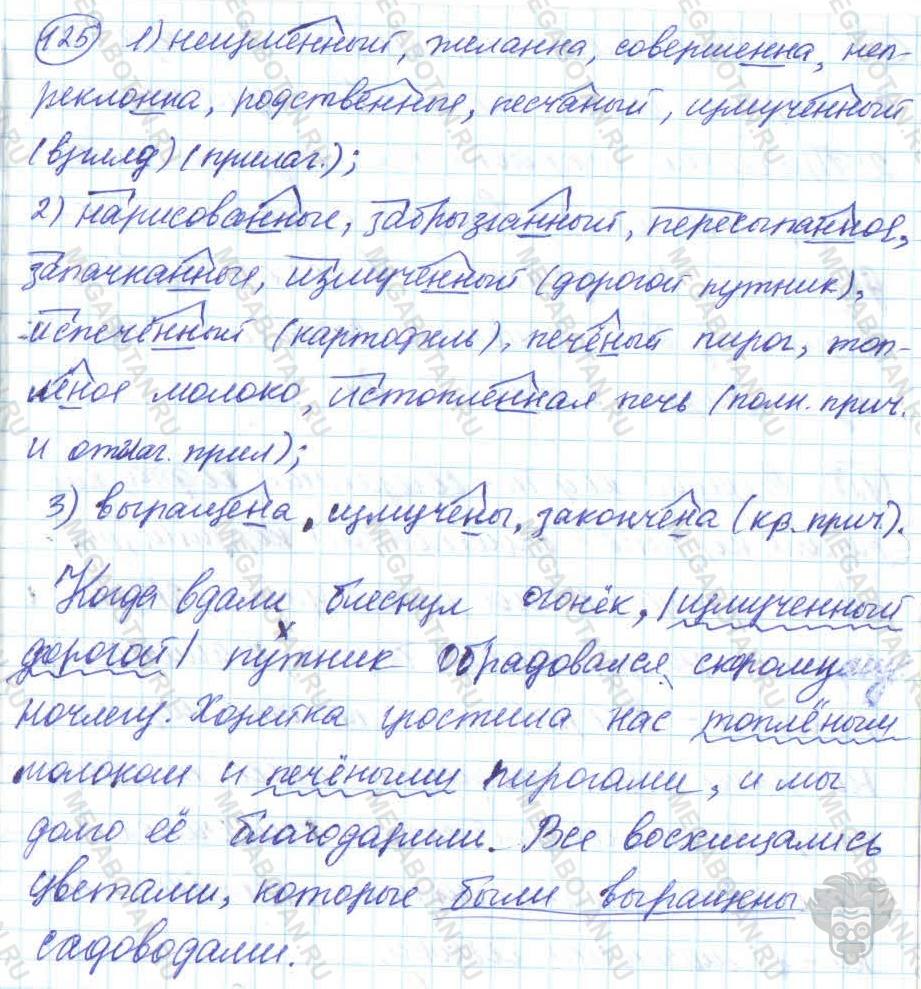 125 1) неизменный, желанна, совершенна, неп-
реклонна, родственные, песчаный, измученный
(взгляд) (прилаг.);
2) нарисованные, забрызганный, пересыпанное,
запачканные, измученный (дорогой путник),
испечённый (картофель), печёный пирог, топ-
лёное молоко, истопленная печь (полн. прич.
и отглаг. прил);
3) выращена, измучены, закончена (кр. прич.).
Когда вдали блеснул огонёк, /измученный
дорогой/ путник обрадовался скромному
ночлегу. Хозяйка угостила нас топлёным
молоком и печёными пирогами, и мы
долго её благодарили. Все восхищались
цветами, которые были выращены
садоводами.
MEGABOTAN.RU